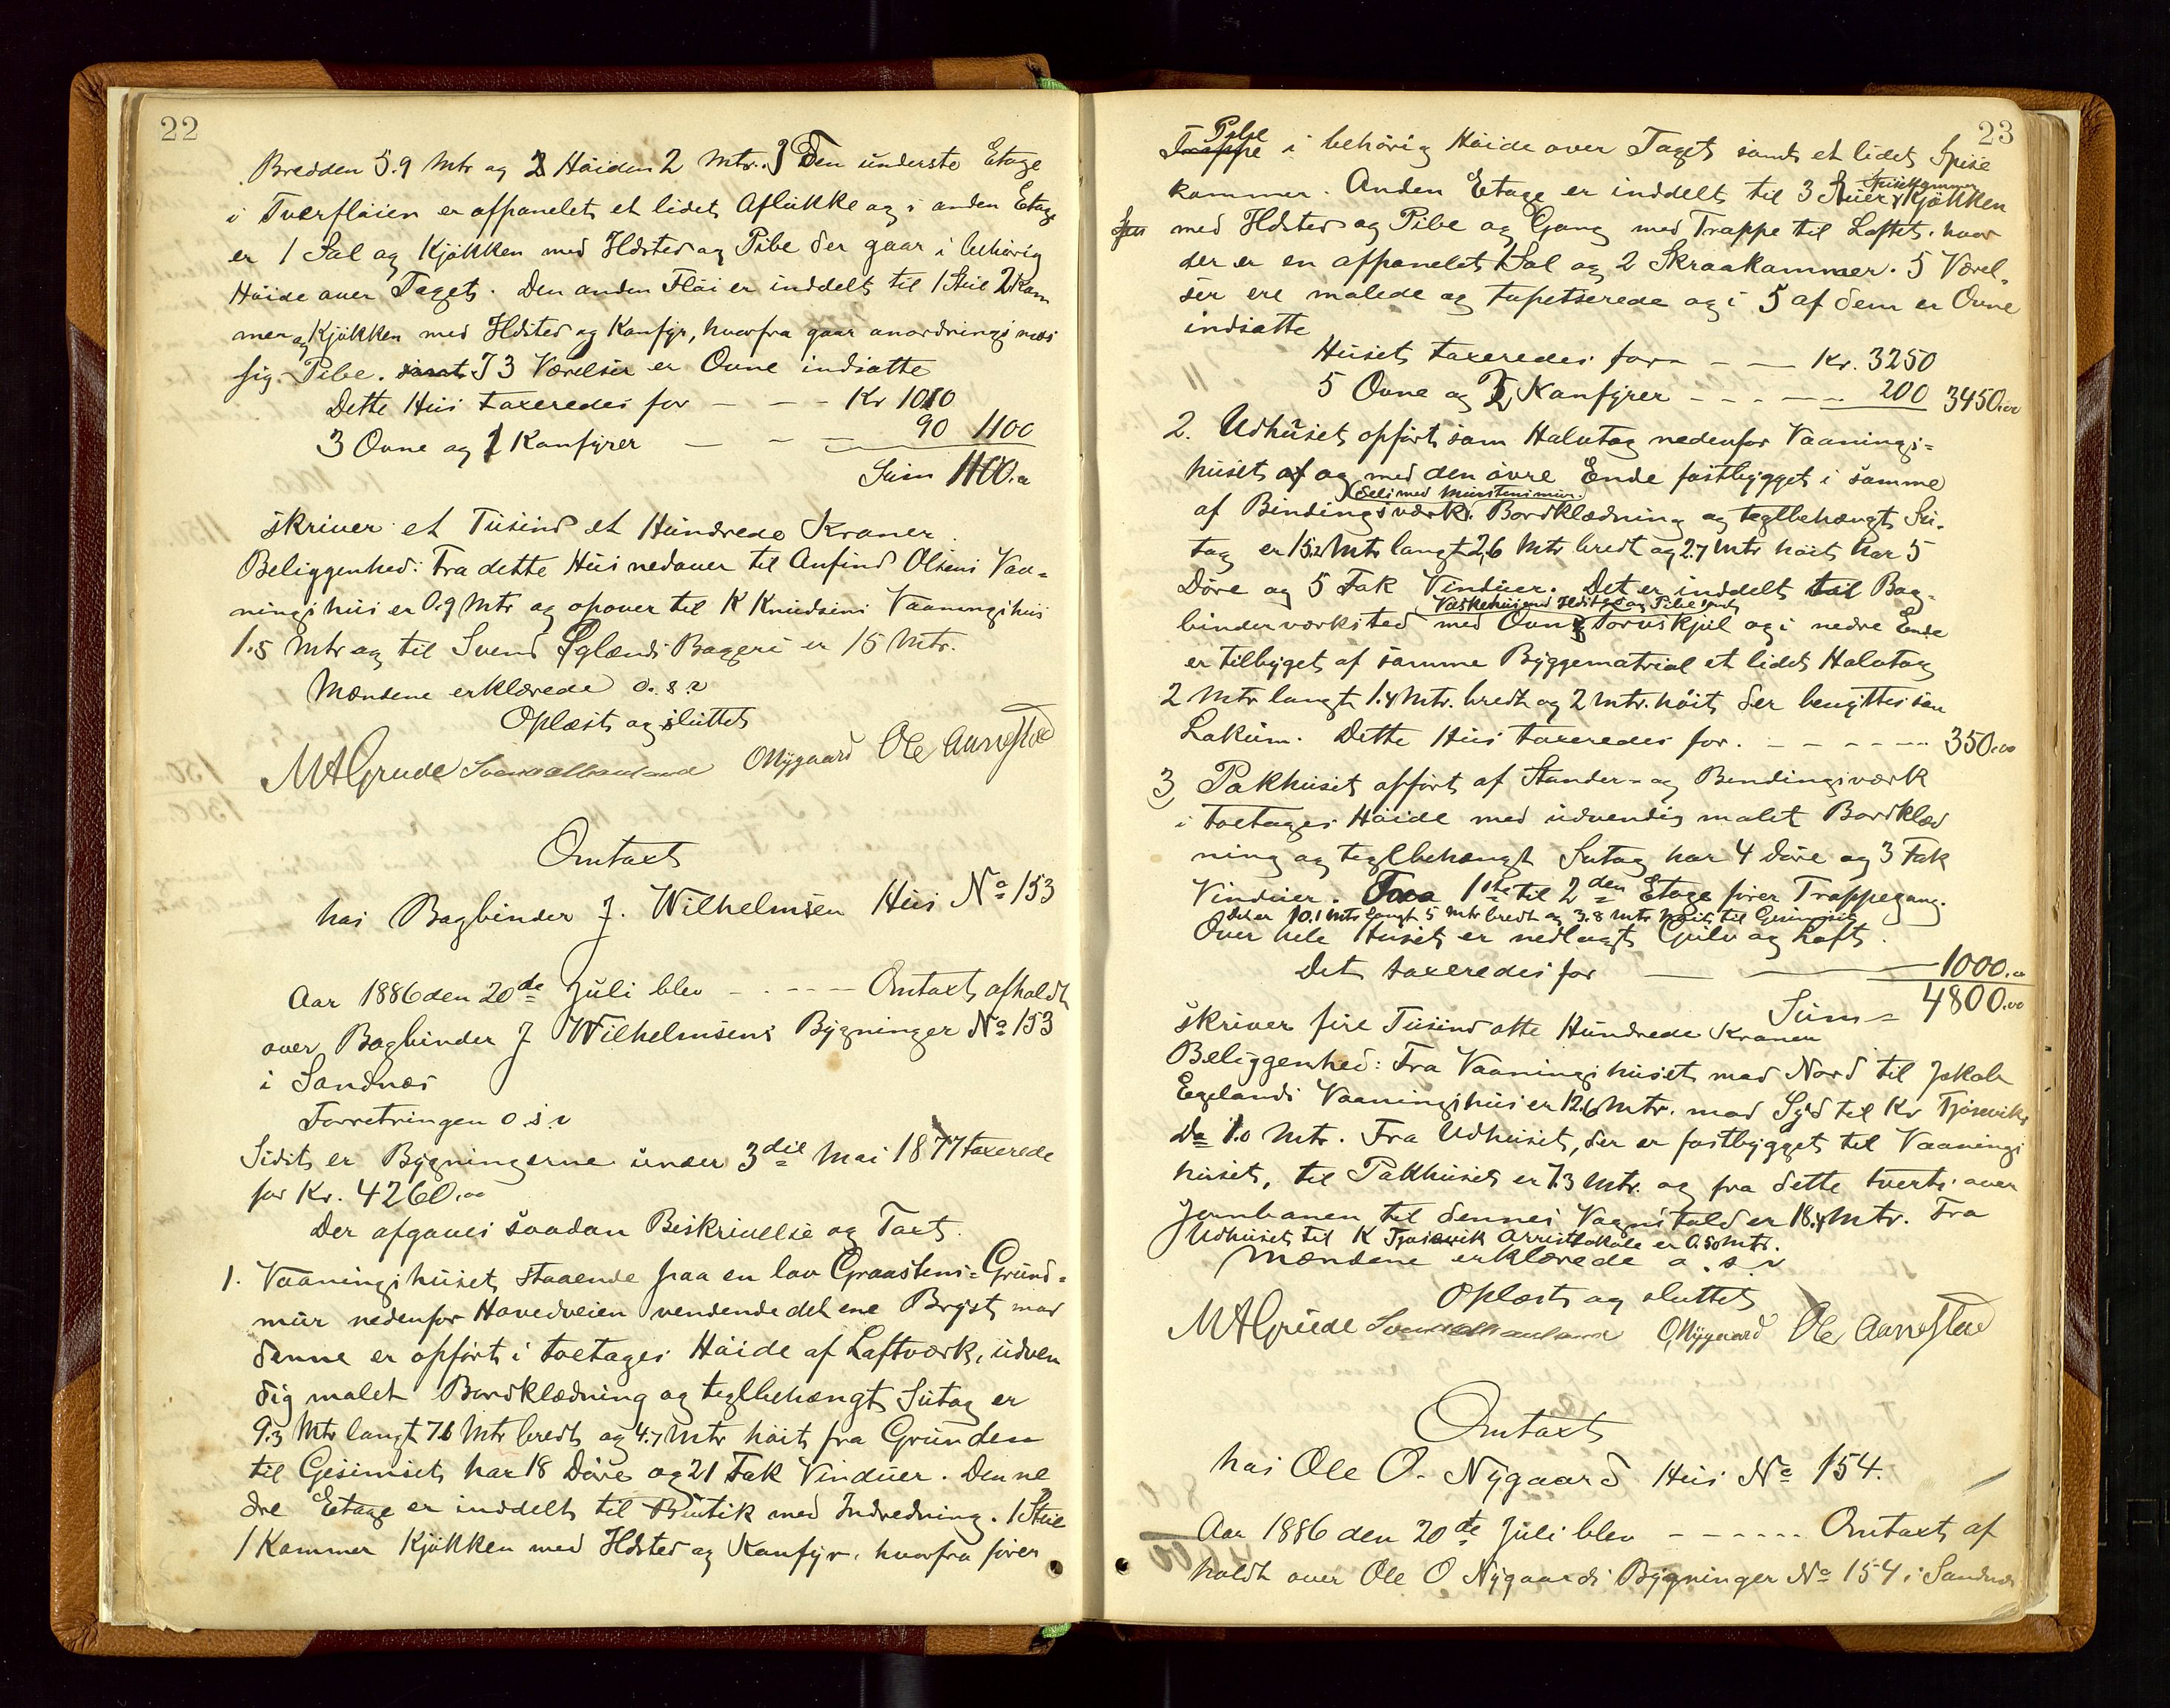 22
Bredden 5.9 Mtr og Höiden 2 Mtr. I Den underste Etage
i Tverflöien er afpanelet et lidet Aflukke og i anden Etage
er 1 Sal og Kjökken med Ildsted og Pibe der gaar i behörig
Höide over Taget. Den anden Flöi er inddelt til 1 Stue 2 Kam
mer og Kjökken med Ildsted og Komfyr, hvorfra gaar anordningsmæs
sig Pibe. samt I 3 Værelser er Ovne indsatte
Dette Hus taxeredes for - - - Kr 1010
3 Ovne og 1 Komfyrer - - - 90 1100
Sum 1100.00
skriver et Tusind et Hundrede Kroner.
Beliggenhed: Fra dette Hus nedover til Anfind Olsens Vaa-
ningshus er 0.9 Mtr og opover til K Knudsens Vaaningshus
1.5 Mtr og til Svend Öglænds Bageri er 15 Mtr.
Mændene erklærede o.s.v
Oplæst og sluttet
M A Grude Svend Haaland O Nygaard Ole Aarrestad
Omtaxt
hos Bogbinder J. Wilhelmsen Hus No 153
Aar 1886 den 20de Juli blev - - - - - Omtaxt afholdt
over Bogbinder J Wilhelmsens Bygninger No 153
i Sandnæs
Forretningen o.s.v
Sidst er Bygningerne under 3die Mai 1877 taxerede
for Kr. 4260.00
Der afgaves saadan Beskrivelse og Taxt.
1. Vaaningshuset staaende paa en lav Graastens-Grund-
mur nedenfor Hovedveien vendende det ene Bryst mod
denne er opfört i toetages Höide af Laftværk, udven
dig malet Bordklædning og teglbehængt Sutag er
9.3 Mtr langt 7.6 Mtr bredt og 4.7 Mtr höit fra Grunden
til Gesimset, har 18 Döre og 21 Fak Vinduer. Den ne
dre Etage er inddelt til Butik med Indredning. 1 Stue
1 Kammer Kjökken med Ildsted og Komfyr, hvorfra förer
23
Pibe
Trappe i behörig Höide over Taget samt et lidet Spise
kammer. Anden Etage er inddelt til 3 Stuer, Spisekammer Kjökken
med Ildsted og Pibe og Gang med Trappe til Loftet, hvor
der er en afpanelet Sal og 2 Skraakammer. 5 Værel-
ser ere malede og tapetserede og i 5 af dem er Ovne
indsatte
Huset taxeredes for - - - Kr. 3250
5 Ovne og 2 Komfyrer - - - - - 200 3450.00
2. Udhuset opfört som Halvtag nedenfor Vaanings-
huset af og med den övre Ende fastbygget i samme
af Bindingsværk (dels med Murstensmur). Bordklædning og teglbehængt Su-
tag er 15.2 Mtr langt 2.6 Mtr bredt og 2.7 Mtr höit har 5
Döre og 5 Fak Vinduer. Det er inddelt til Bog-
Vaskehus med Ildsted og Pibe samt
binderværksted med Ovn og Torvskjul og i nedre Ende
er tilbygget af samme Byggematrial et lidet Halvtag
2 Mtr langt 1.4 Mtr. bredt og 2 Mtr. höit, der benyttes som
Lokum. Dette Hus taxeredes for. - - - - - - 350.00
3, Pakhuset opfört af Stander- og Bendingsværk
i toetages Höide med udvendig malet Bordklæd
ning og teglbehængt Sutag har 4 Döre og 3 Fak
Vinduer. Fra 1ste til 2den Etage förer Trappegang.
Det er 10.1 Mtr langt 5 Mtr bredt og 3.8 Mtr höit til Gesimset
Over hele Huset er nedlagt Gulv og Loft.
Det taxeredes for - - - 1000.00
Sum = 4800.00
skriver fire Tusind otte Hundrede Kroner
Beliggenhed: Fra Vaaningshuset mod Nord til Jakob
Egelands Vaaningshus er 12.6 Mtr. mod Syd til Kr Tjösevik
Do 1.0 Mtr. Fra Udhuset, der er fastbygget til Vaanings
huset, til Pakhuset er 7.3 Mtr. og fra dette tvert over
Jernbanen til dennes Vognstald er 18.4 Mtr. Fra
Udhuset til K Tjösevik Arrestlokale er 0.50 Mtr.
Mændene erklærede o.s.v
Oplæst og sluttet
M A Grude Svend Haaland O. Nygaard Ole Aarrestad
Omtaxt
hos Ole O. Nygaard Hus No 154.
Aar 1886 den 20de Juli blev - - - - - - Omtaxt af
holdt over Ole O Nygaards Bygninger No 154 i Sandnæs